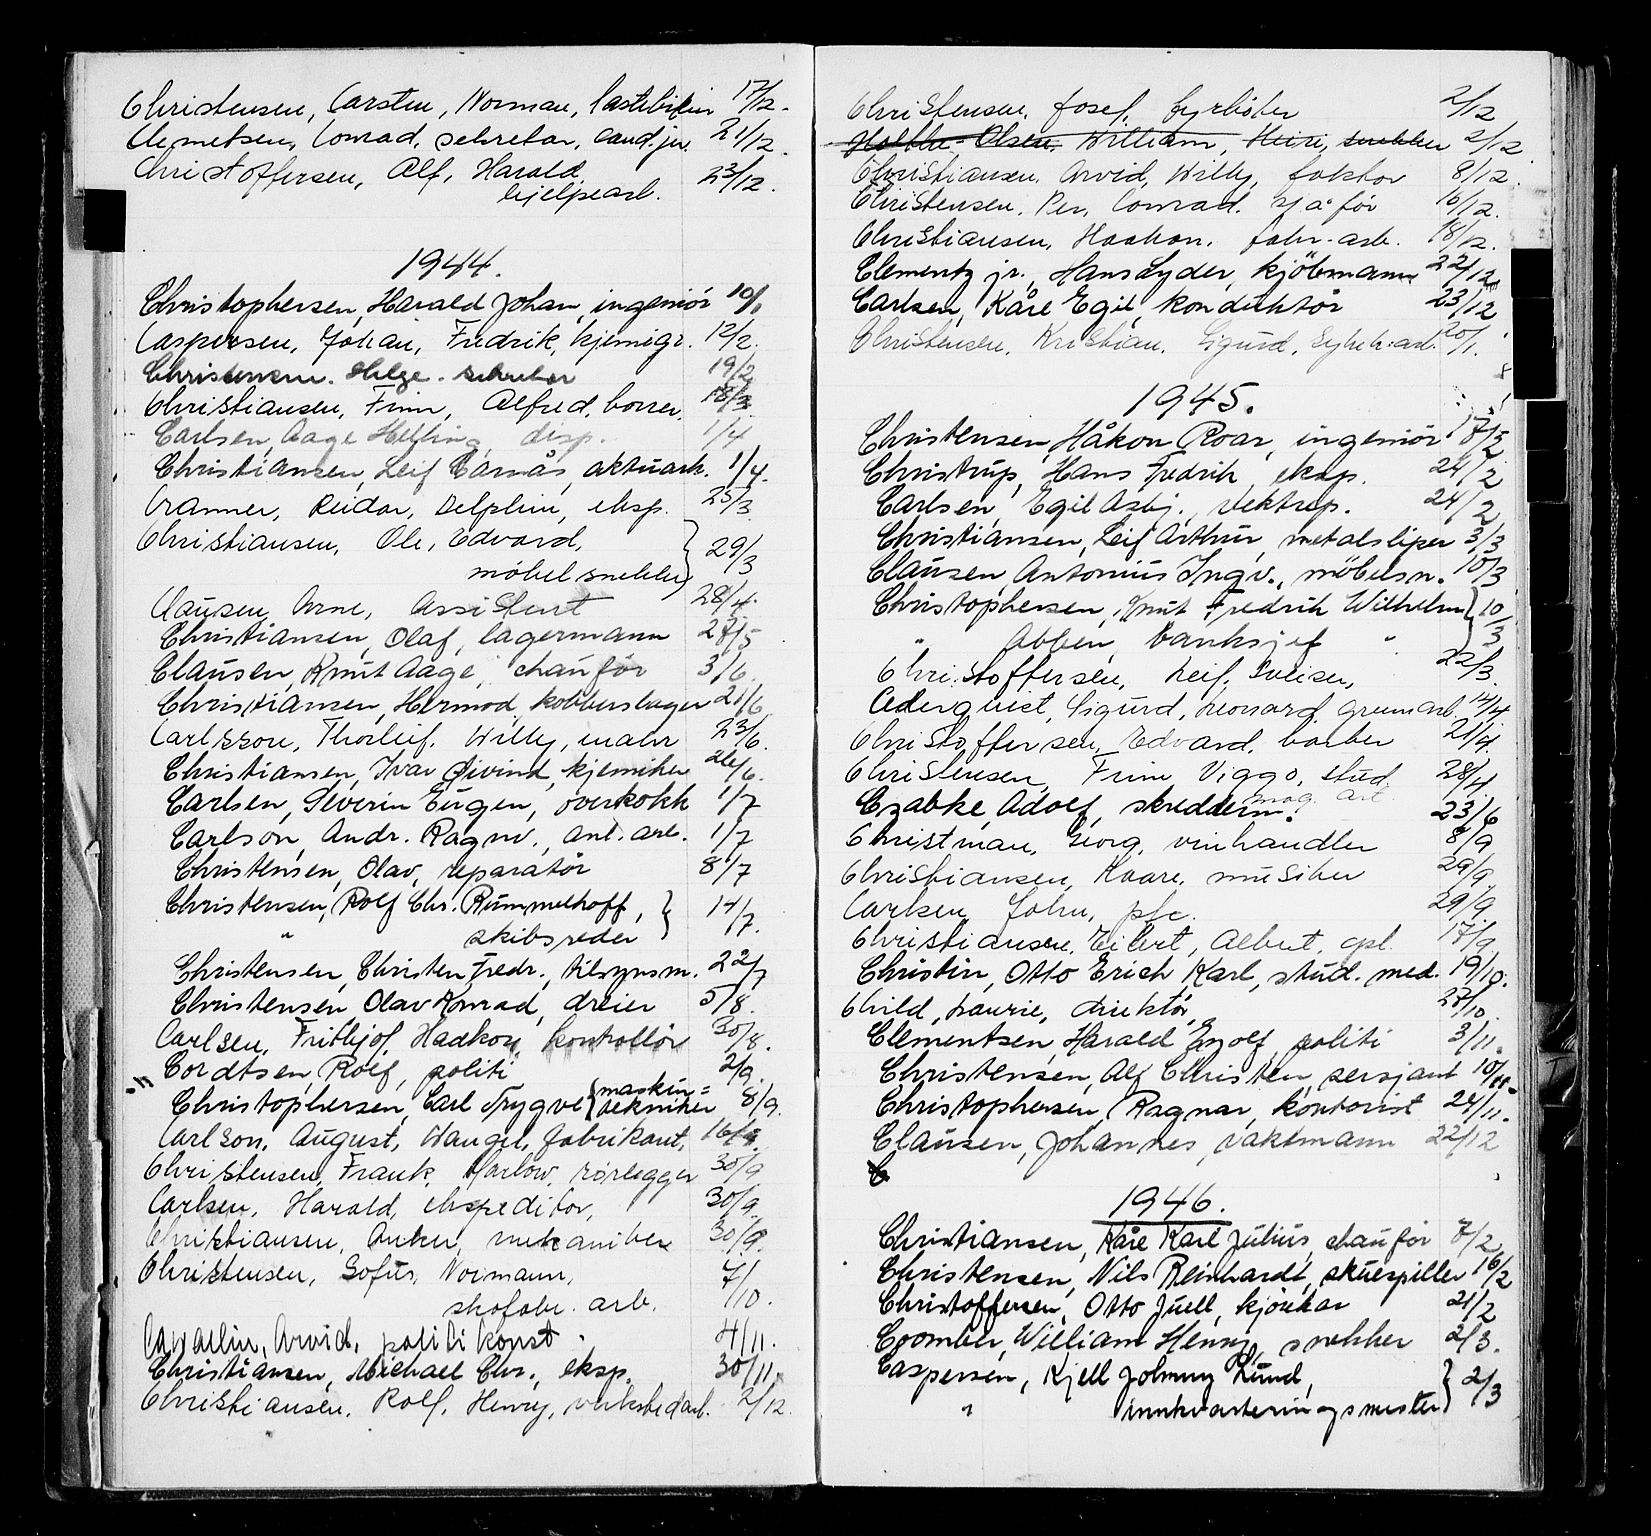 Christensen, Carsten, Norman, lastebileier 17/12.
Clemetsen, Conrad, sekretær, cand. jur. 21/12.
Christoffersen, Alf, Harald, 23/12.
hjelpearb.
1944.
Christophersen, Harald Johan, ingeniör 10/1
Caspersen, Johan, Fredrik, kjemigr. 12/2.
Christensen. Helge. sekretær 19/2
Christiansen, Finn, Alfred, borer. 18/3
Carlsen, Aage Helling, disp. 1/4
Christiansen, Leif Carnås, aktuark. 1/4.
Cranner, Reidar, Delphin, eksp. 25/3.
Christiansen, Ole, Edvard, } 29/3
möbelsnekker
Clausen, Arne, Assistent 28/4.
Christiansen, Olaf, lagermann 27/5
Clausen, Knut Aage, chauför 3/6.
Christiansen, Hermod, kobberslager 21/6
Carlsson, Thorleif. Willy, maler 23/6.
Christiansen, Ivar Öivind, kjemiker 26/6.
Carlsen, Severin Eugen, overkokk 1/7
Carlson, Andr. Ragnv., anl. arb. 1/7
Christensen, Olav, reparatör 8/7
Christensen, Rolf Chr. Rummelhoff, } 14/7.
" skibsreder
Christensen, Christen Fredr., tilsynsm. 22/7
Christensen, Olav Konrad, dreier 5/8.
Carlsen, Frithjof, Haakon, kontrollör 30/8.
Cordtsen, Rolf, politi 2/9.
Christophersen, Carl Trygve { maskin=
tekniker 8/9.
Carlson, August, Wangel, fabrikant, 16/9.
Christensen, Frank, Harlow, rörlegger 30/9
Carlsen, Harald, ekspeditör, 30/9.
Christiansen, Anker, mekaniker 30/9.
Christensen, Sofus, Normann, 7/10.
skofabr. arb.
Cavallin, Arvid, politikonst. 4/11.
Christiansen, Michael Chr., eksp. 30/11.
Christiansen, Rolf, Henry, verkstedarb. 2/12.
Christensen, Josef, fyrböter 2/12
Holthe-Olsen, William, snekker 2/12
Christiansen, Arvid, Willy, faktor 8/12.
Christensen, Per, Conrad. sjåför 16/12.
Christiansen, Haakon. fabr. arb. 18/12.
Clementz jr., Hans Lyder, kjöbmann 22/12
Carlsen, Kåre Egil, konduktör 23/12
Christensen, Kristian, Sigurd, 20/1.
1945.
Christensen, Håkon Roar, ingeniör 17/2
Christrup, Hans Fredrik, eksp. 24/2
Carlsen, Egil Asbj., vektrep. 24/2
Christiansen, Leif Arthur, metalsliper 3/3
Clausen, Antonius Ingv., möbelsn. 10/3
Christophersen, Knut Fredrik Wilhelm } 10/3
" Abben, banksjef "
Christoffersen, Leif, Sveiser, 22/3.
Cederquist, Sigurd, Leonard, grovarb. 14/4.
Christoffersen, Edvard, barber 21/4.
Christensen, Finn Viggo, stud. 28/4.
mag. art.
Czabke, Adolf, skredderm. 23/6
Christman, Georg, vinhandler 8/9
Christiansen, Kaare, musiker 29/9.
Carlsen, John, pfc. 29/9.
Christiansen, Eilert, Albert, cpl. 17/9.
Christin, Otto Erich Karl, stud. med. 19/10.
Child, Laurie, direktör, 27/10.
Clementsen, Harald Enolf, politi 3/11.
Christensen, Alf Christen, sersjant 10/11
Christophersen, Ragnar, kontorist 24/11.
Clausen, Johannes, vaktmann 22/12
C
1946.
Christiansen, Kåre Karl Julius, chauför 7/2
Christensen, Nils Reinhardt, skuespiller 16/2
Christoffersen, Otto Juell, 21/2
Coomber, William Henry, snekker 2/3.
Caspersen, Kjell Johnny Rund, } 2/3
" innkvarteringsmester